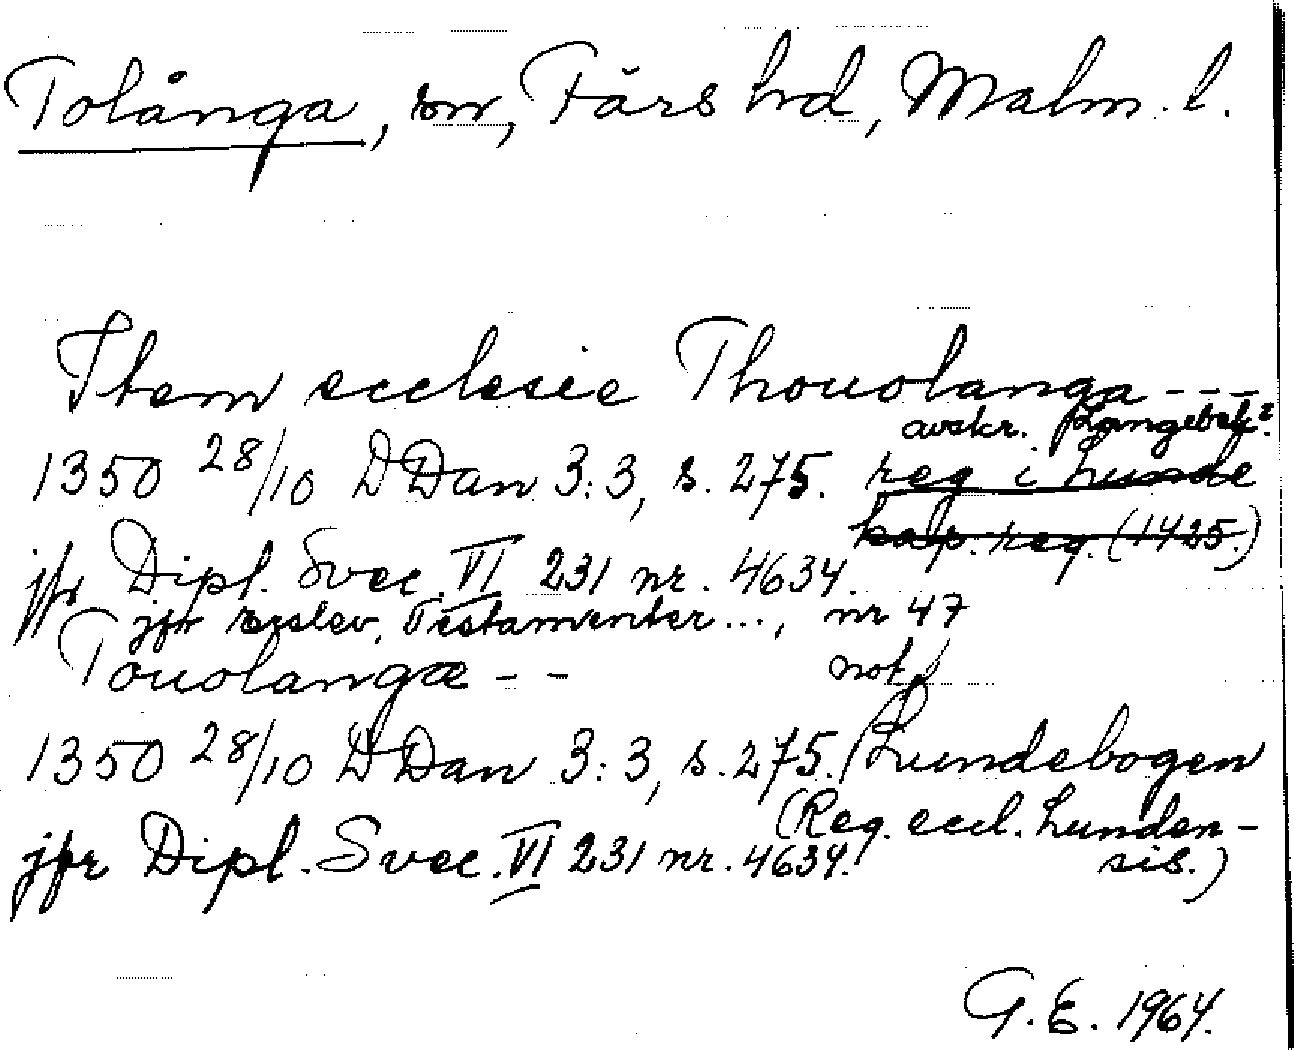 Tolånga, sn, Färs hd, Malm. l.
Item ecclesie Thouolanga - - -
avskr. Langebek?
1350 28/10 DDan 3:3, s. 275. reg i Lunde
kap. reg. (1425.)
jfr Dipl. Svec. VI 231 nr. 4634.
jfr Erslev, Testamenter..., nr 47
Touolangæ - - not
1350 28/10 DDan 3:3, s. 275. Lundebogen
(Reg. eccl. Lunden-
jfr Dipl. Svec. VI 231 nr. 4634. sis.)
G.E. 1964.